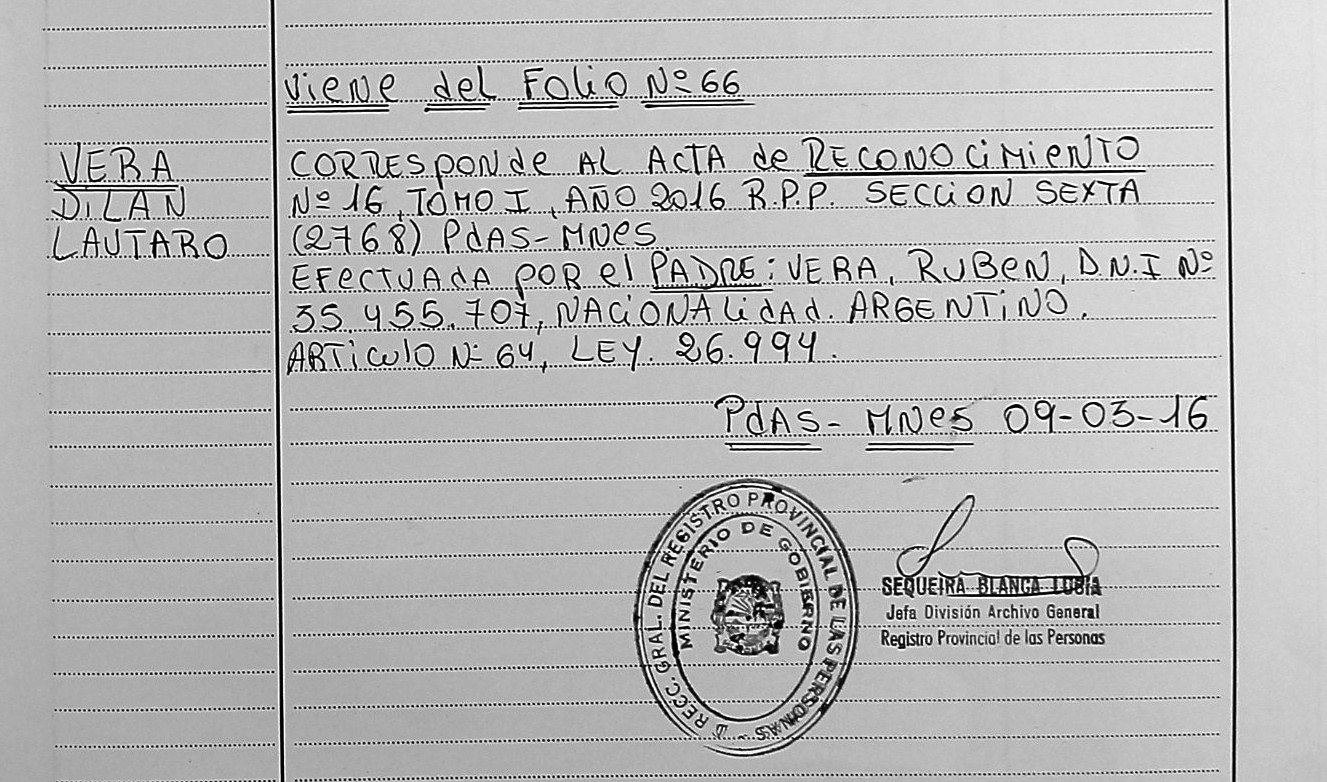 Viene del Folio Nº 66
VERA
DILAN
LAUTARO
CORRESponde AL ACTA de RECONOCiMiENTO
Nº 16, TOMO I, AÑO 2016 R.P.P. SECCiON SEXTA
(2768) PdAS-MNes.
EFECTUAdA POR el PADRE: VERA, RUBEN, D.N.I Nº
35 455.707, NACiONALidAd. ARGENTiNO.
ARTiculO Nº 64, LEY. 26.994.
PdAS- MNes 09-03-16
D RECC. GRAL. DEL REGISTRO PROVINCIAL DE LAS PERSONAS -
MINISTERIO DE GOBIERNO
SEQUEIRA BLANCA LUBIA
Jefa División Archivo General
Registro Provincial de las Personas